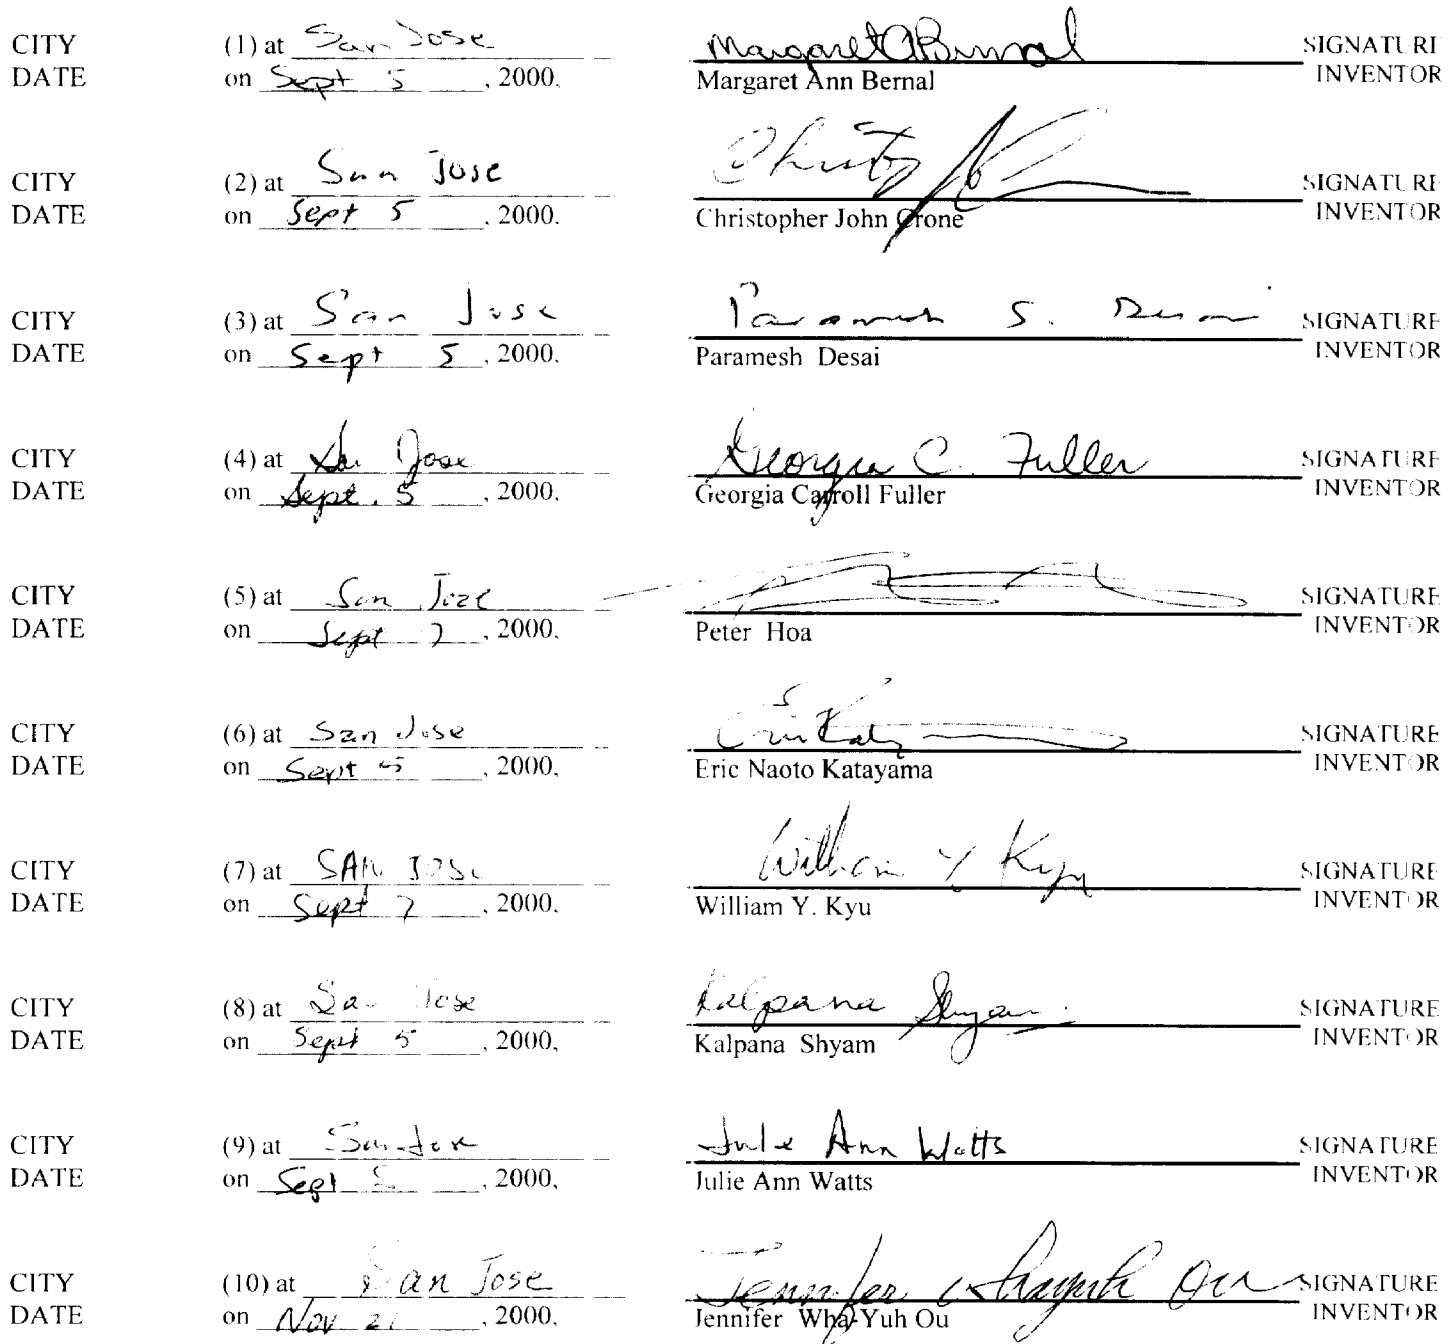 CITY (1) at San Jose Margaret A Bernal SIGNATURE
DATE on Sept 5, 2000. Margaret Ann Bernal INVENTOR
CITY (2) at San Jose SIGNATURE
DATE on Sept 5, 2000. Christopher John Crone INVENTOR
CITY (3) at San Jose Paramesh S. Desai SIGNATURE
DATE on Sept 5, 2000. Paramesh Desai INVENTOR
CITY (4) at San Jose Georgia C. Fuller SIGNATURE
DATE on Sept. 5, 2000. Georgia Carroll Fuller INVENTOR
CITY (5) at San Jose SIGNATURE
DATE on Sept 7, 2000. Peter Hoa INVENTOR
CITY (6) at San Jose SIGNATURE
DATE on Sept 5, 2000. Eric Naoto Katayama INVENTOR
CITY (7) at SAN JOSE William Y Kyu SIGNATURE
DATE on Sept 7, 2000. William Y. Kyu INVENTOR
CITY (8) at San Jose Kalpana Shyam SIGNATURE
DATE on Sept 5, 2000. Kalpana Shyam INVENTOR
CITY (9) at San Jose Julie Ann Watts SIGNATURE
DATE on Sept 5, 2000. Julie Ann Watts INVENTOR
CITY (10) at San Jose Jennifer Wha-Yuh Ou SIGNATURE
DATE on Nov 21, 2000. Jennifer Wha-Yuh Ou INVENTOR